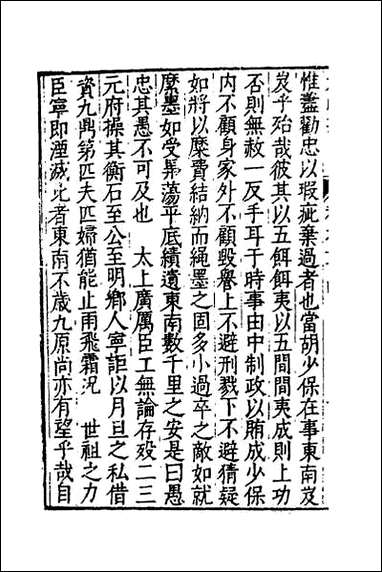 惟盡勸忠以瑕疵棄過者也當胡少保在事東南岌
岌乎殆哉彼其以五餌餌夷以五間間夷成則上功
否則無赦一反手耳于時事由中制政以賄成少保
内不顧身家外不顧毀譽上不避刑戮下不避猜疑
如將以麋費結納而繩墨之固多小過卒之敵如就
麋墨如受昺蕩平底績遺東南數千里之安是曰愚
忠其愚不可及也　太上廣厲臣工無論存歿二三
元府操其衡石至公至明鄉人寧詎以月旦之私借
資九鼎第匹夫匹婦猶能止雨飛霜況　世祖之力
臣寧即湮滅比者東南不歲九原尚亦有望乎哉自